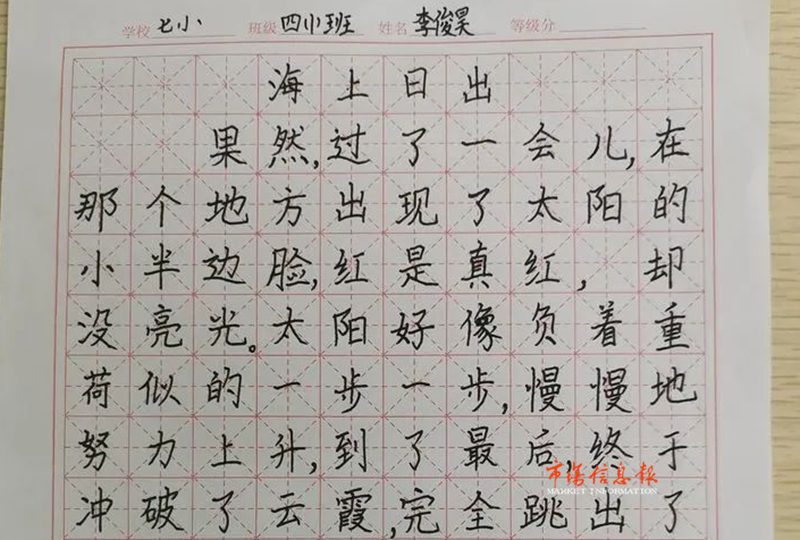 学校 七小 班级 四小班 姓名 李俊昊 等级分
海上日出
果然,过了一会儿,在
那个地方出现了太阳的
小半边脸,红是真红,却
没亮光。太阳好像负着重
荷似的一步一步,慢慢地
努力上升,到了最后,终于
冲破了云霞,完全跳出了
市场信息报
MARKET INFORMATION